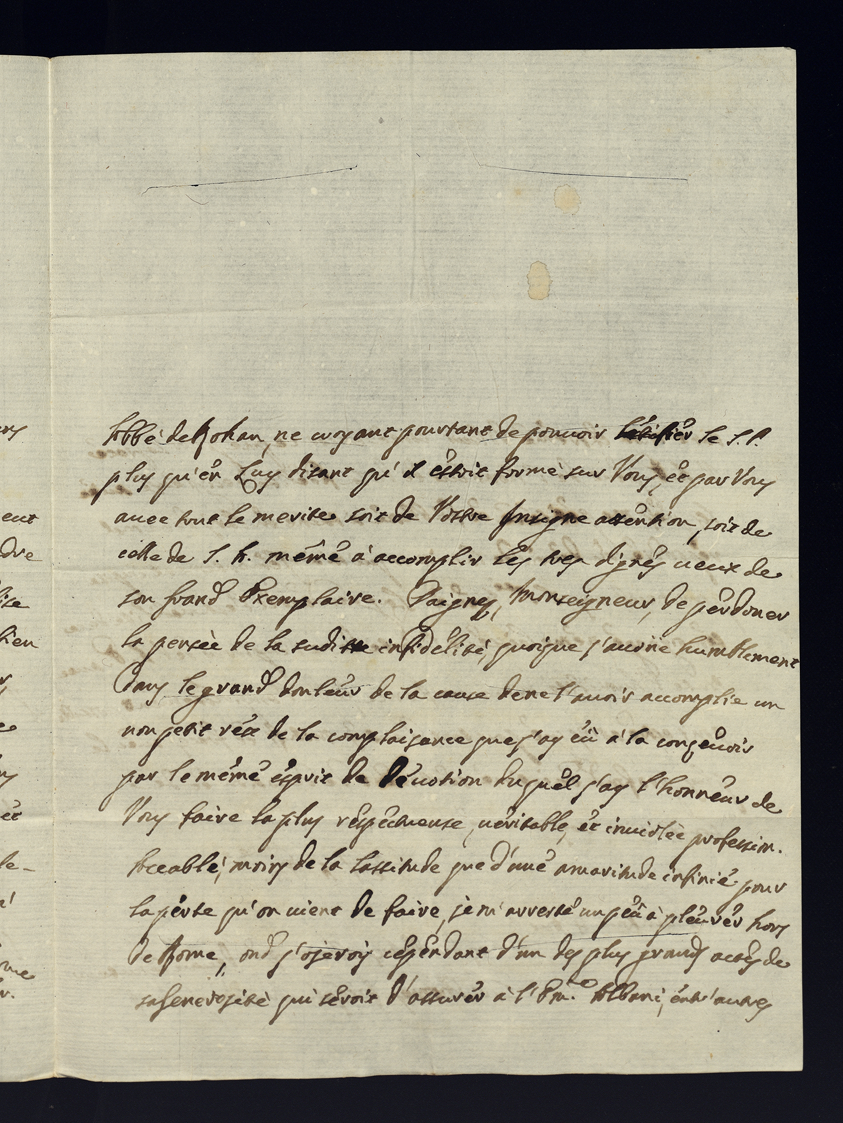 Abbé de Rohan, ne croyant pourtant de pouvoir le S. P.
plus qu'en Luy disant qu'il estoit formé sur Vous, et par Vous
avec tout le merite soit de Vostre Insigne attention, soit de
celle de S. A. même à accomplir les tres dignes veux de
son grand Exemplaire. Daignez, Monseigneur, de perdoner
la pensée de la suditte infidelité, quoique j'avoüe humblement
dans le grand douleur de la cause de ne l'avoir accomplie un
non petit reste de la complaisance que j'ay eü à la conçevoir
par le même esprit de Dévotion duquel j'ay l'honneur de
Vous faire la plus respectueuse, veritable, et inviolée profession.
Accablé, moins de la lassitude que d'une amaritude infinie pour
la perte qu'on vient de faire, je m'arreste un peü à pleurer hors
de Rome, j'oserois cependant d'un des plus grands actes de
sa Generosité qui seroit d'assurer à l'Em.mo Albani, entr'autres